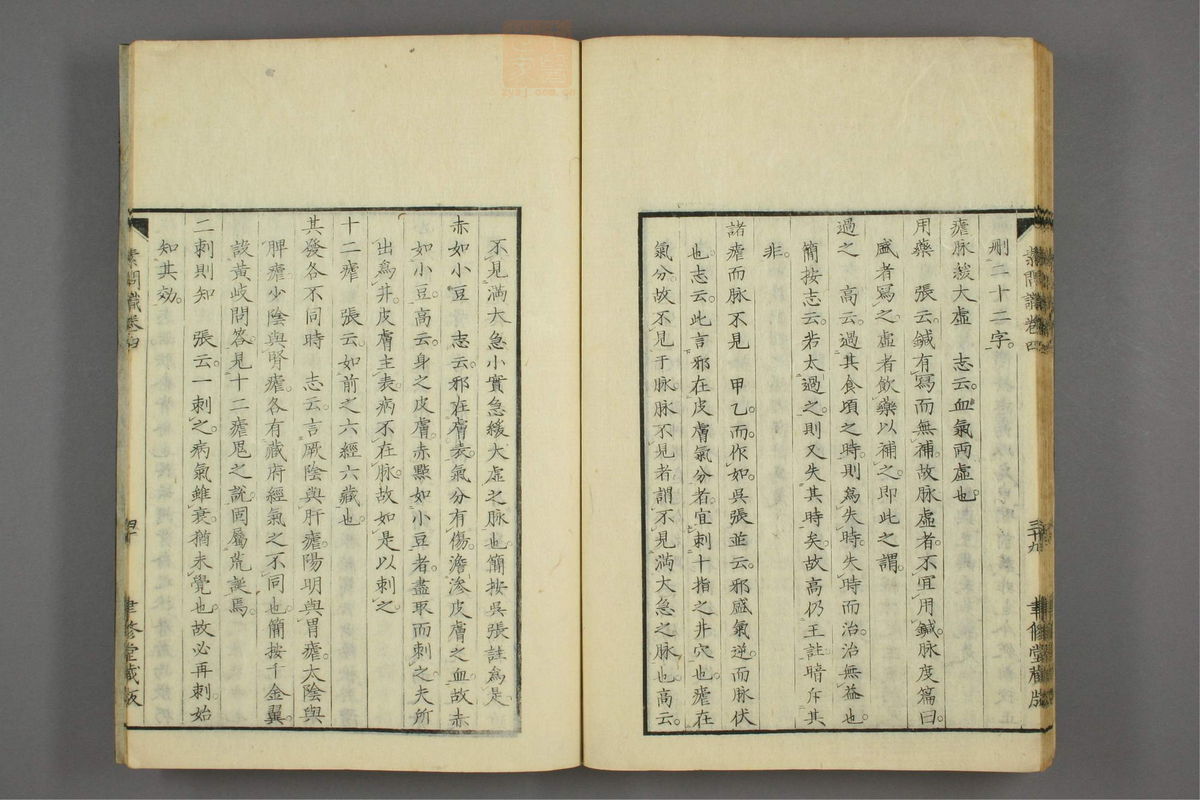 素問識卷四
三十九
聿修堂藏版
刪二十二字。
瘧脉緩大虛 志云。血氣兩虛也。
用藥 張云。鍼有寫而無補。故脉虛者。不宜用鍼。脉度篇曰。
盛者寫之。虛者飲藥以補之。即此之謂。
過之 高云。過其食頃之時。則爲失時。失時而治。治無益也。
簡按志云。若太過之。則又失其時矣。故高仍王註。暗斥其
非。
諸瘧而脉不見 甲乙。而。作如。吳張並云。邪盛氣逆。而脉伏
也。志云。此言邪在皮膚氣分者。宜刺十指之井穴也。瘧在
氣分。故不見于脉。脉不見者。謂不見滿大急之脉也。高云。
不見滿大急小實急緩大虛之脉也。簡按吳張註爲是。
赤如小豆 志云。邪在膚表。氣分有傷。澹滲皮膚之血。故赤
如小豆。高云。身之皮膚。赤點如小豆者。盡取而刺之。夫所
出爲井。皮膚主表。病不在脉。故如是以刺之。
十二瘧 張云。如前之六經六藏也。
其發各不同時 志云。言厥陰與肝瘧。陽明與胃瘧。太陰與
脾瘧。少陰與腎瘧。各有藏府經氣之不同也。簡按千金翼。
設黃歧問答。見十二瘧鬼之說。固屬荒誕焉。
二刺則知 張云。一刺之。病氣雖衰。猶未覺也。故必再刺。始
知其効。
素問識卷四
四十
聿修堂藏版